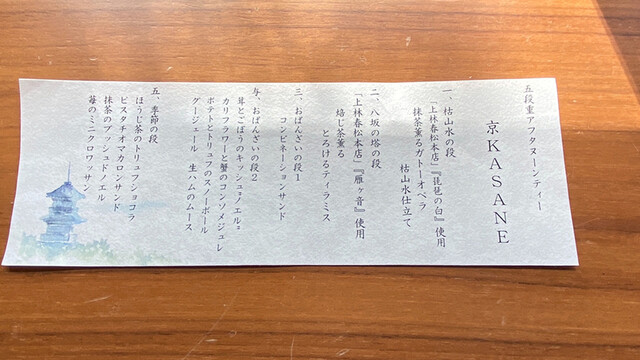 五段重アフタヌーンティー
京KASANE
一、枯山水の段
上林春松本店」『琵琶の白』使用
抹茶薫るガトーオペラ
枯山水仕立て
二、八坂の塔の段
『上林春松本店」『雁ヶ音』使用
焙じ茶薫る
とろけるティラミス
三、おばんざいの段1
コンビネーションサンド
与、おばんざいの段2
茸とごぼうのキッシュ"ノエル"
カリフラワーと蟹のコンソメジュレ
ポテトとトリュフのスノーボール
グージェール 生ハムのムース
五、季節の段
ほうじ茶のトリュフショコラ
ピスタチオマカロンサンド
抹茶のブッシュドノエル
苺のミニクロワッサン